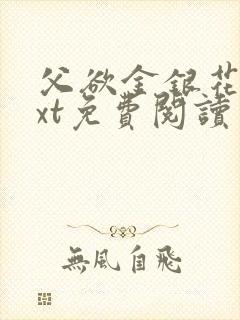 父欲金銀花
xt免費閱讀
無風自飛